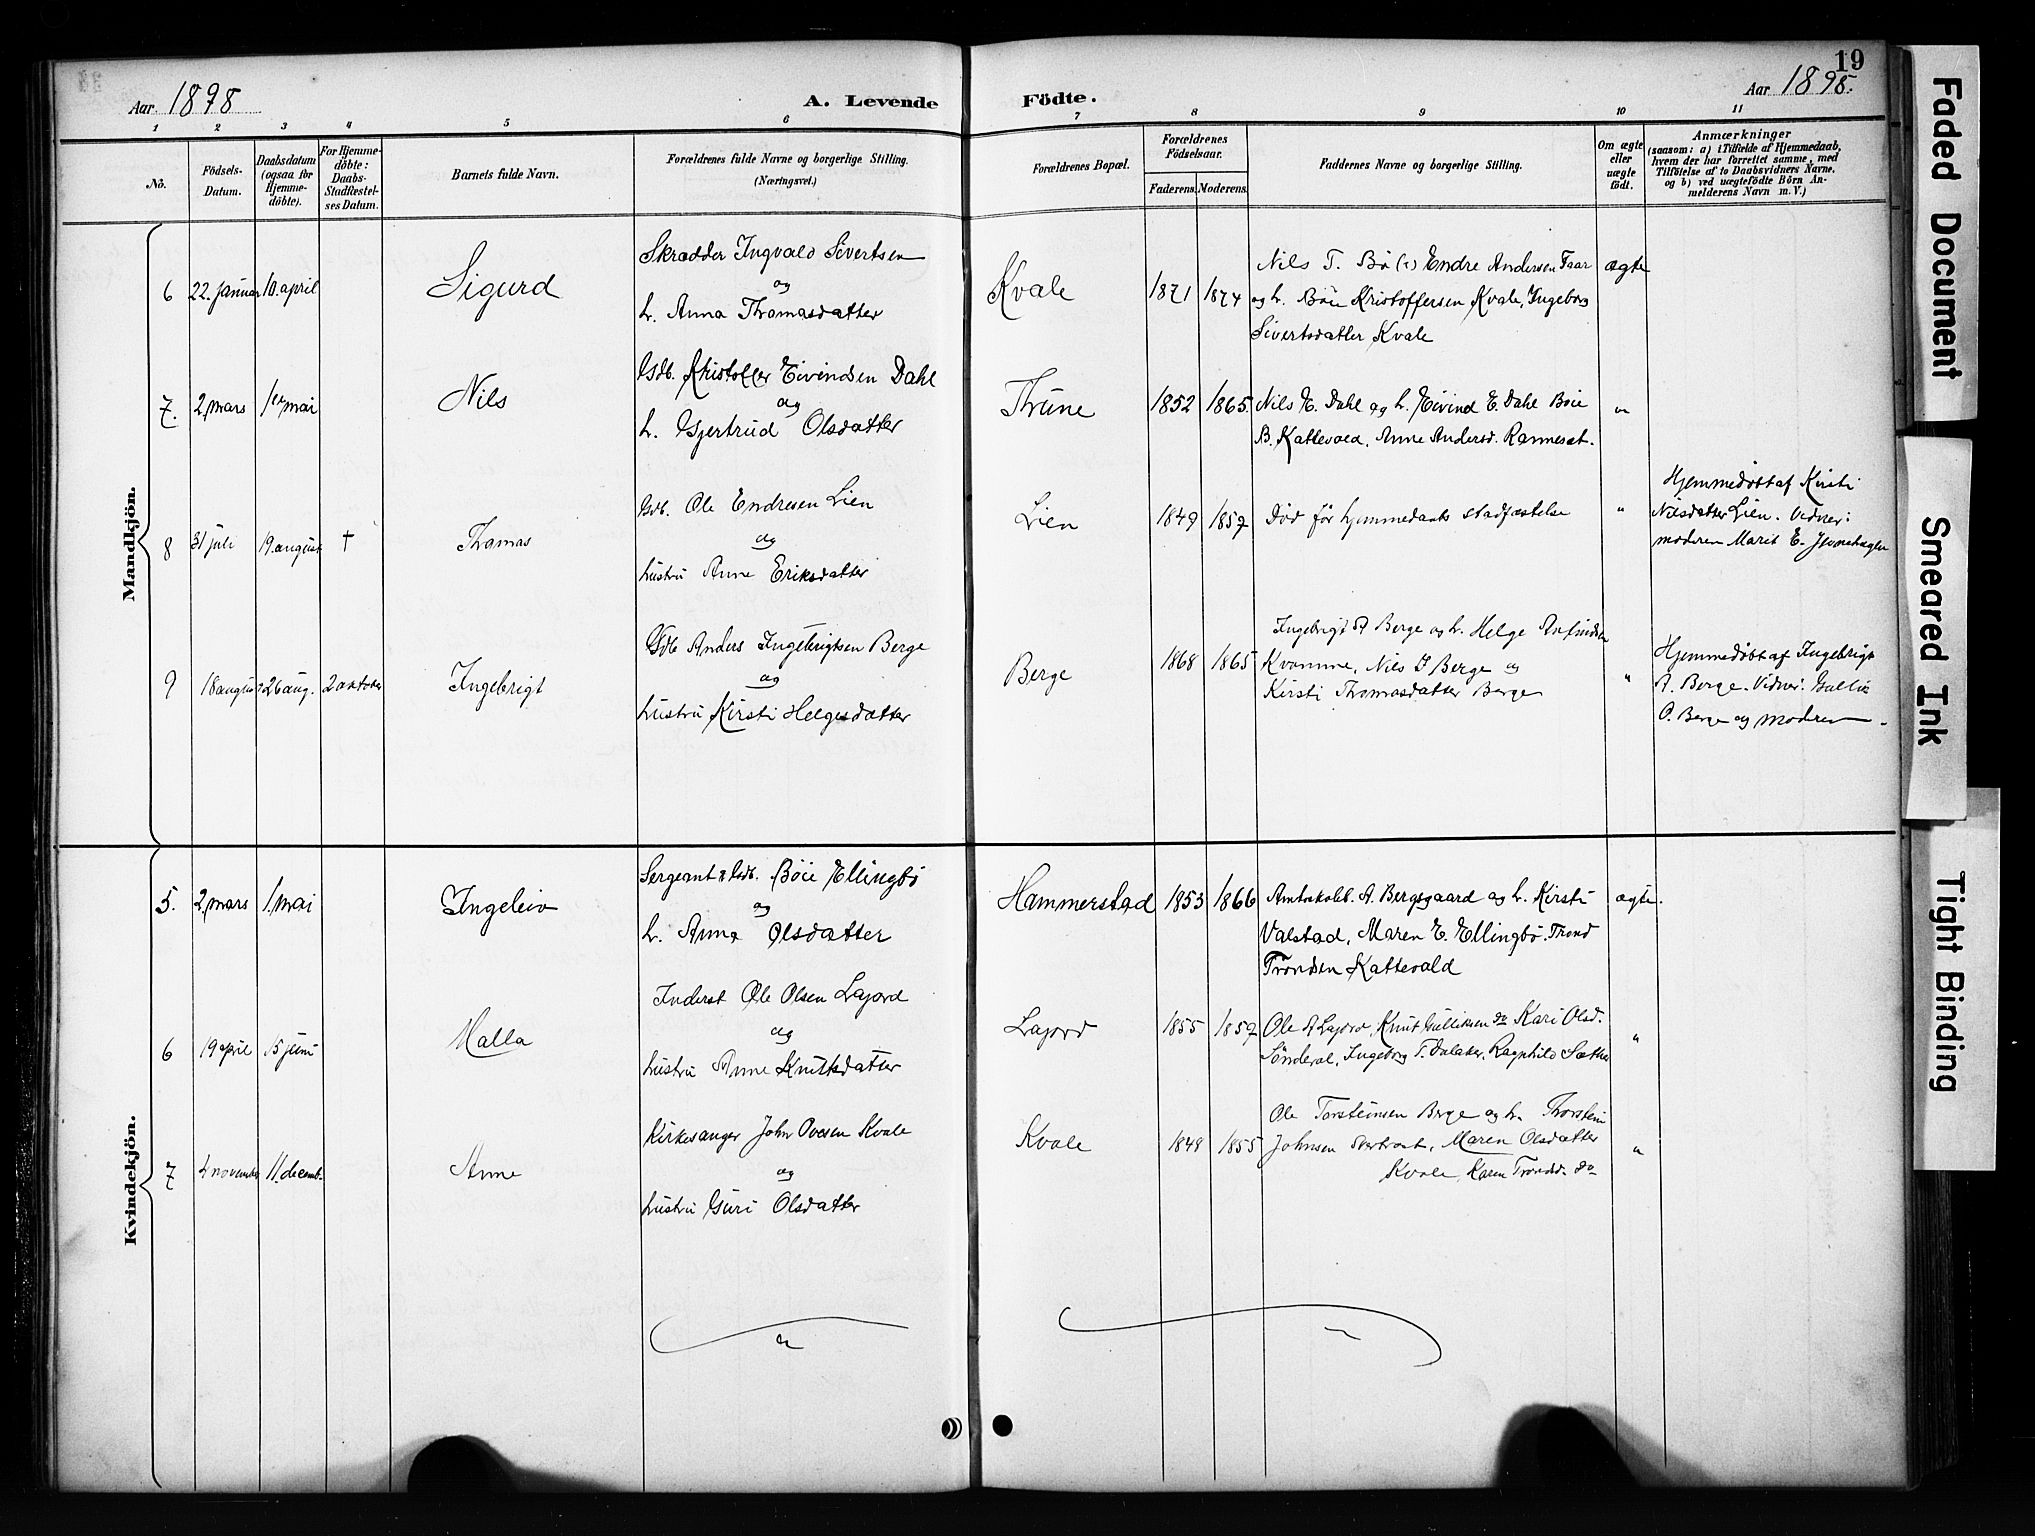 19
Aar 1898
A. Levende
Födte.
Aar 1898.
1 2 3 4 5 6 7 8 9 10 11
No.
Födsels-
Datum.
Daabsdatum
(ogsaa for
Hjemme-
döbte).
For Hjemme-
döbte:
Daabs-
Stadfæstel-
ses Datum.
Barnets fulde Navn.
Forældrenes fulde Navne og borgerlige Stilling.
(Næringsvei.)
Forældrenes Bopæl.
Forældrenes
Födselsaar.
Faderens. Moderens.
Faddernes Navne og borgerlige Stilling.
Om ægte
eller
uægte
födt.
Anmærkninger
(saasom: a) i Tilfælde af Hjemmedaab,
hvem der har forrettet samme, med
Tilföielse af to Daabsvidners Navne,
og b) ved uægtefödte Börn An-
melderens Navn m. V.)
Mandkjön.
6 22. januar 10. april Sigurd
Skrædder Ingvald Sivertsen
og
h. Anna Thomasdatter
Kvale 1871 1874
Nils T. Bö (?) Endre Andersen Faar
og h. Böie Kristoffersen Kvale, Ingeborg
Sivertsdatter Kvale
ægte
7. 2, mars 1ste mai Nils
Gdb. Kristoffer Eivindsen Dahl
og
h. Gjertrud Olsdatter
Thune 1852 1865.
Nils E. Dahl og h. Eivind E. Dahl Böie
B. Kattevold, Anne Andersd.
"
8 31 juli 19. august † Thomas
Gdb. Ole Endresen Lien
og
hustru Anne Eriksdatter
Lien 1849 1857
Död för hjemmedaabs stadfæstelse
"
Hjemmedöbt af Kirsti
Nilsdatter Lien. Vidner:
moderen Marit E.
9 18 august 26 aug. 2 oktober Ingebrigt
Gdb Anders Ingebrigtsen Berge
og
hustru Kirsti Helgesdatter
Berge 1868 1865
Ingebrigt A Berge og h. Helge Arfindsen
Kvamme, Nils I Berge og
Kirsti Thomasdatter Berge
"
Hjemmedöbt af Ingebrigt
A. Berge. Vidner:
O. Berge og moderen.
Kvindekjön.
5. 2, mars 1. mai Ingeleiv
Sergeant & Gdb. Böie Ellingbö
og
h. Anna Olsdatter
Hammerstad 1853 1866
A. Bergsgaard og h. Kirsti
Valstad, Maren E. Ellingbö. Trond
Trondsen Kattevold
ægte.
6 19 april 15 juni Malla
Inderst Ole Olsen Lajord
og
hustru Anne Knutsdatter
Lajord 1855 1857
Ole A Lajord, Knut Gulliksen do Kari Olsd.
Ingeborg T. Ragnhild
"
7 4 november 11. decemb. Anne
Kirkesanger John Ovesen Kvale
og
hustru Guri Olsdatter
Kvale 1848 1855
Ole Torsteinsen Berge og h. Thorstein
Johnsen Maren Olsdatter
Kvale, Karen Trondsd. do
"
Faded Document
Smeared Ink
Tight Binding